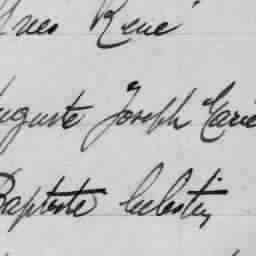 Yves René
Auguste Joseph Marie
Baptiste Célestin